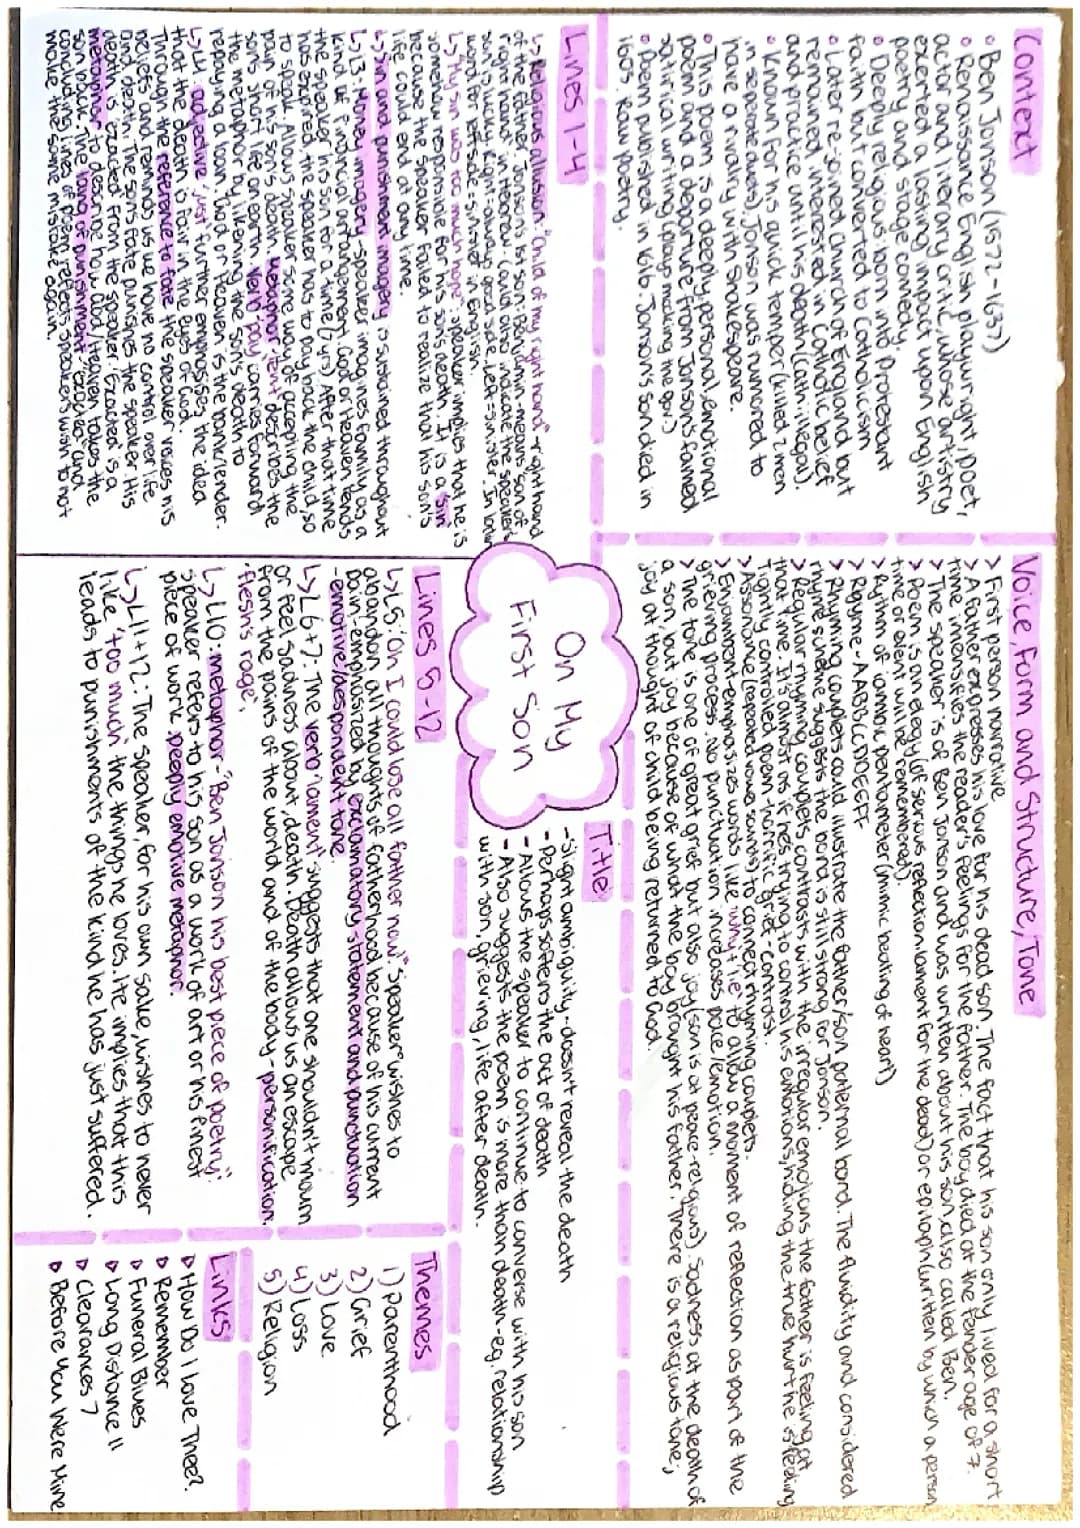 Context
• Ben Jonson (1572-1637)
• Renaissance English playwright, poet,
actor and literary critic, whose artistry
exerted a lasting impact upon English
poetry and stage comedy.
• Deeply religious: born into Protestant
faith but converted to Catholicism
• Later re-joined Church of England but
remained interested in Catholic belief
and practice until his death (Cath: illegal).
• Known for his quick temper (killed 2 men
in separate duels). Jonson was rumored to
have a rivalry with Shakespeare.
• This poem is a deeply personal, emotional
poem and a departure from Jonsons famed
satirical writing (plays mocking the gov.)
• Poem published in 1616. Jonson's son died in
1603. Raw poetry.
Voice, Form and Structure, Tone
> First person narrative
> A father expresses his love for his dead son. The fact that his son only lived for a short
time intensifies the reader's feelings for the father. The boy died at the tender age of 7.
> The speaker is of Ben Jonson and was written about his son, also called Ben.
> Poem is an elegy (of serious reflection: lament for the dead) or epitaph (written by which a person
time or event will be remembered).
> Rythm of iambic pentameter (mimic beating of heart)
> Rhyme - AABBCCDDEEFF
> Rhyming couplets could illustrate the father/son paternal bond. The fluidity and considered
rhyme scheme suggests the bond is still strong for Jonson.
> Regular rhyming couplets contrasts with the irregular emotions the father is feeling at
that time. It's almost as if he's trying to control his emotions, hiding the true hurt he is feeling
Tightly controlled poem - horrific grief - contrast.
> Assonance (repeated vowel sounds) to connect rhyming couplets.
> Enjambment - emphasizes words like 'why' + 'lie' to allow a moment of reflection as part of the
grieving process. No punctuation increases pace/emotion.
> The tone is one of great grief but also joy (son is at peace - religious). Sadness at the death of
a son, but joy because of what the boy brought his father. There is a religious tone;
joy at thought of child being returned to God.
Lines 1-4
↳ Religious allusion: "Child of my right hand" - right hand
of the father. Jonson's son Benjamin - means son of
right hand in Hebrew. Could also indicate the speakers
son is lucky. Right = always good side. Left = sinister. In latin
word for left side: sinister in English.
↳ 'My sin was too much hope': speaker implies that he is
somehow responsible for his son's death. It is a 'sin'
because the speaker failed to realize that his son's
life could end at any time.
↳ Sin and punishment imagery is sustained throughout
↳ L3: Money imagery - speaker imagines family as a
kind of financial arrangement. God or Heaven lends
the speaker his son for a time (7 yrs). After that time
has expired, the speaker has to pay back the child, so
to speak. Allows speaker some way of accepting the
pain of his son's death. Metaphor 'lent' describes the
son's short life on earth. Verb 'pay' carries forward
the metaphor by likening the son's death to
repaying a loan. God or Heaven is the bank/lender.
↳ L4: adjective 'just' further emphasises the idea
that the death is fair in the eyes of God.
Through the reference to fate the speaker voices his
beliefs and reminds us we have no control over life
and death. The son's fate punishes the speaker. His
death is 'exacted' from the speaker. 'Exacted' is a
metaphor to describe how God/Heaven takes the
son back. The lang of punishment 'exacted' and
concluding lines of poem reflects speakers wish to not
invoke the same mistake again.
On My
First Son
Title
- Slight ambiguity - doesn't reveal the death
- Perhaps softens the act of death
- Allows the speaker to continue to converse with his son
- Also suggests the poem is more than death - eg. relationship
with son, grieving, life after death.
Lines 5-12
↳ L5: 'Oh I could lose all father now!' speaker wishes to
abandon all thoughts of fatherhood because of his current
pain - emphasized by exclamatory statement and punctuation
- emotive/despondent tone.
↳ L6+7: The verb 'lament' suggests that one shouldn't mourn
or feel sadness about death. Death allows us an escape
from the pains of the world and of the body - personification.
'flesh's rage'.
↳ L10: metaphor - "Ben Jonson his best piece of poetry":
speaker refers to his son as a work of art or his finest
piece of work. Deeply emotive metaphor.
↳ L11+12: The speaker, for his own sake, wishes to never
like 'too much' the things he loves. He implies that this
leads to punishments of the kind he has just suffered.
Themes
1) Parenthood
2) Grief
3) Love
4) Loss
5) Religion
Links
▷ How Do I Love Thee?
▷ Remember
▷ Funeral Blues
▷ Long Distance II
▷ Clearances 7
▷ Before You Were Mine